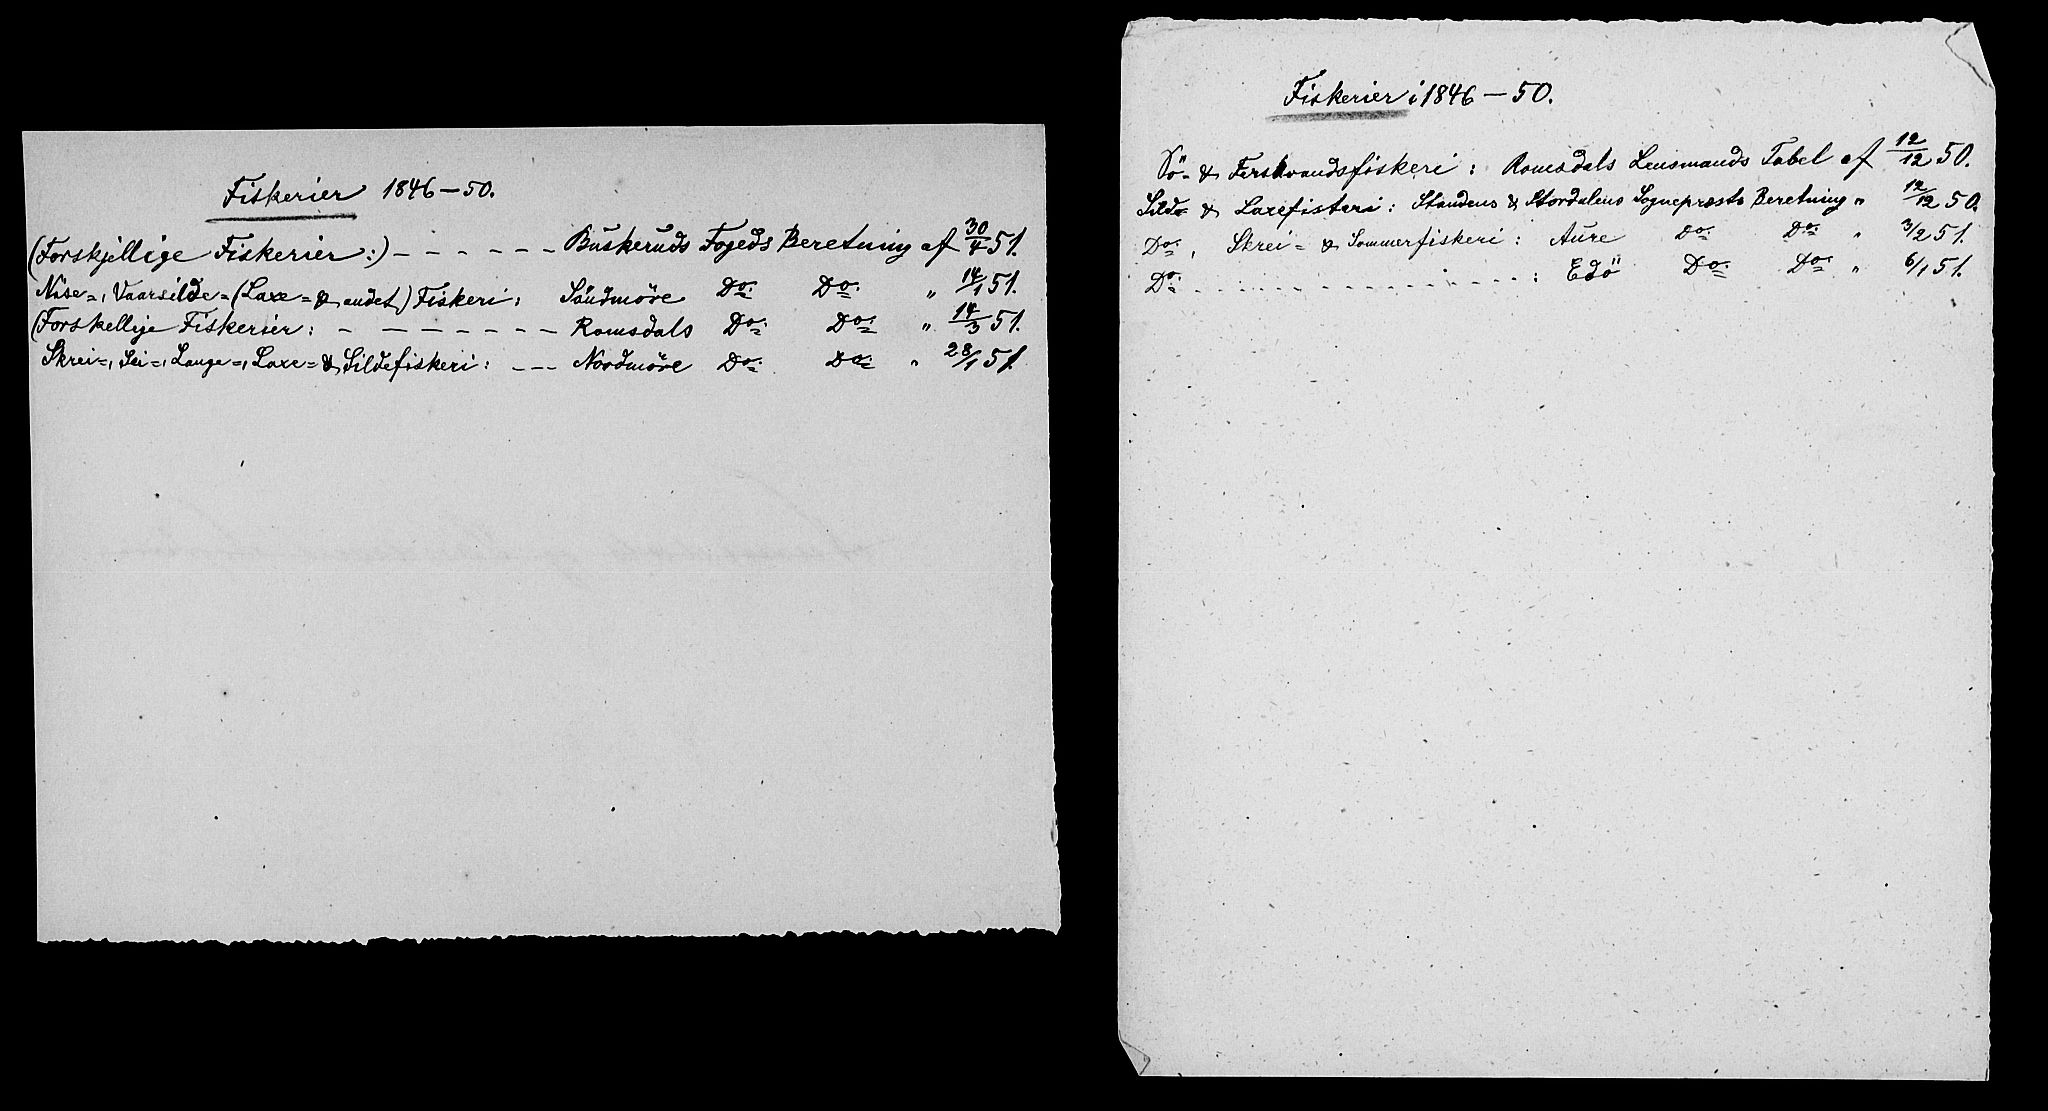 Fiskerier 1846-50.
(Forskjellige Fiskerier:) - - - - - - Buskeruds Fogeds Beretning af 30/4 51.
Nise=, Vaarsilde= (Laxe= & andet) Fiskeri: Söndmöre Do. Do. " 14/1 51.
(Forskellige Fiskerier: - - - - - - - Romsdals Do. Do. " 14/3 51.
Skrei=, Sei=, Lange=, Laxe= & Sildefiskeri: - - - Nordmöre Do. Do. " 28/1 51.
Fiskerier i 1846-50.
Sö- & Ferskvandsfiskeri: Romsdals Lensmands Tabel af 12/12 50.
Silde & Laxefisteri: Stordalens Sogneprests Beretning " 12/12 50.
Do., Skrei= & Sommerfiskeri: Aure Do. Do. " 3/2 51.
Do. - - - - - - - - - - - - - - : Edö Do. Do. " 6/1 51.